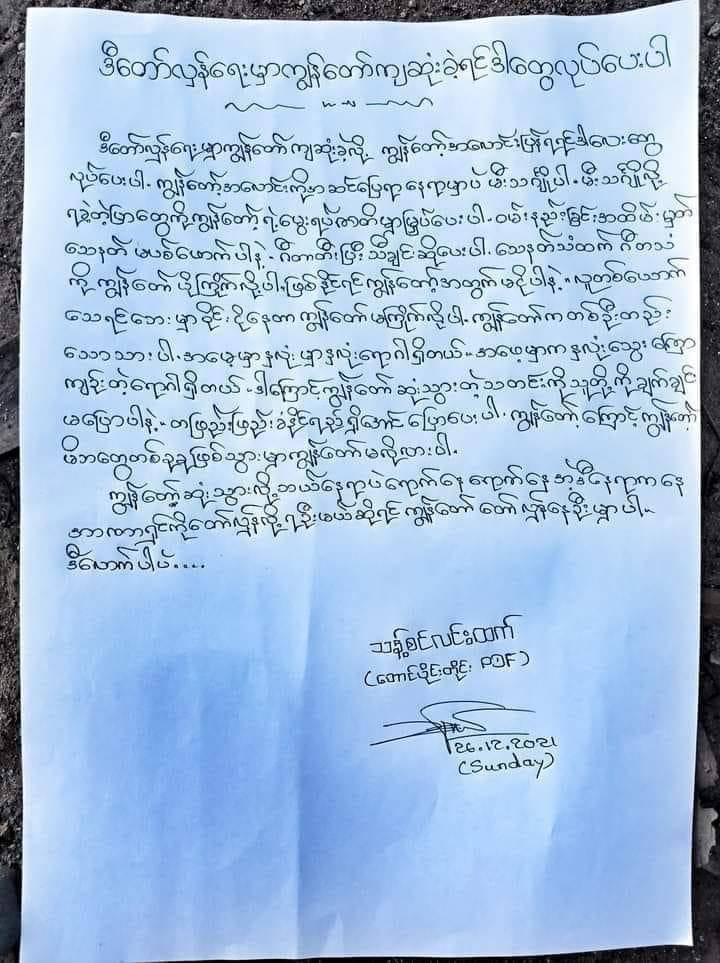 ဒီတော်လှန်ရေးမှာကျွန်တော်ကျဆုံးခဲ့ရင်ဒါတွေလုပ်ပေးပါ
ဒီတော်လှန်ရေးမှာကျွန်တော်ကျဆုံးခဲ့လို့ ကျွန်တော့်အလောင်းပြန်ရရင်ဒါလေးတွေ
လုပ်ပေးပါ. ကျွန်တော့်အလောင်းကိုအဆင်ပြေရာနေရာမှာပဲ မီးသင်္ဂြိုလ်ပါ. မီးသင်္ဂြိုလ်လို့
ရခဲ့တဲ့ပြာတွေကိုကျွန်တော့်ရဲ့မွေးရပ်ဇာတိမှာမြှုပ်ပေးပါ. ဝမ်းနည်းခြင်းအထိမ်းမှတ်
သေနတ် မပစ်ဖောက်ပါနဲ့. ဂီတာတီးပြီး သီချင်းဆိုပေးပါ. သေနတ်သံထက် ဂီတသံ
ကို ကျွန်တော် ပိုကြိုက်လို့ပါ. ဖြစ်နိုင်ရင်ကျွန်တော့်အတွက်မငိုပါနဲ့. လူတစ်ယောက်
သေရင်ဘေးမှာဝိုင်းငိုနေတာကျွန်တော်မကြိုက်လို့ပါ. ကျွန်တော်က တစ်ဦးတည်း
သောသားပါ. အမေ့မှာနှလုံးမှာနှလုံးရောဂါရှိတယ်. အဖေ့မှာကနှလုံးသွေးကြော
ကျဉ်းတဲ့ရောဂါရှိတယ်. ဒါကြောင့်ကျွန်တော်ဆုံးသွားတဲ့သတင်းကိုသူတို့ကိုချက်ချင်း
မပြောပါနဲ့. တဖြည်းဖြည်းခံနိုင်ရည်ရှိအောင်ပြောပေးပါ. ကျွန်တော့်ကြောင့်ကျွန်တော့်
မိဘတွေတစ်ခုခုဖြစ်သွားမှာကျွန်တော်မလိုလားပါ.
ကျွန်တော်ဆုံးသွားလို့ဘယ်နေရာပဲရောက်နေရောက်နေအဲ့ဒီနေရာကနေ
အာဏာရှင်ကိုတော်လှန်လို့ရဦးမယ်ဆိုရင်ကျွန်တော်တော်လှန်နေဦးမှာပါ.
ဒီလောက်ပါပဲ....
သန့်စင်လင်းထက်
(တောင်ပိုင်းတိုင်း PDF)
26.12.2021
(Sunday)